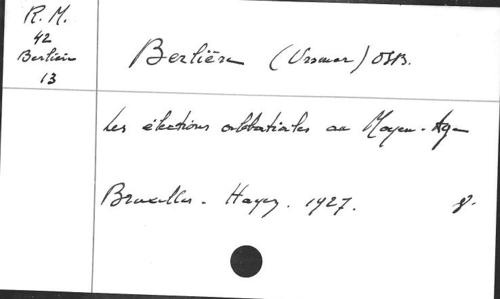 R. M.
42
Berlière
13
Berlière (Ursmer) OSB.
Les élections abbatiales au Moyen-Age
Bruxelles - Hayez. 1927. 8°